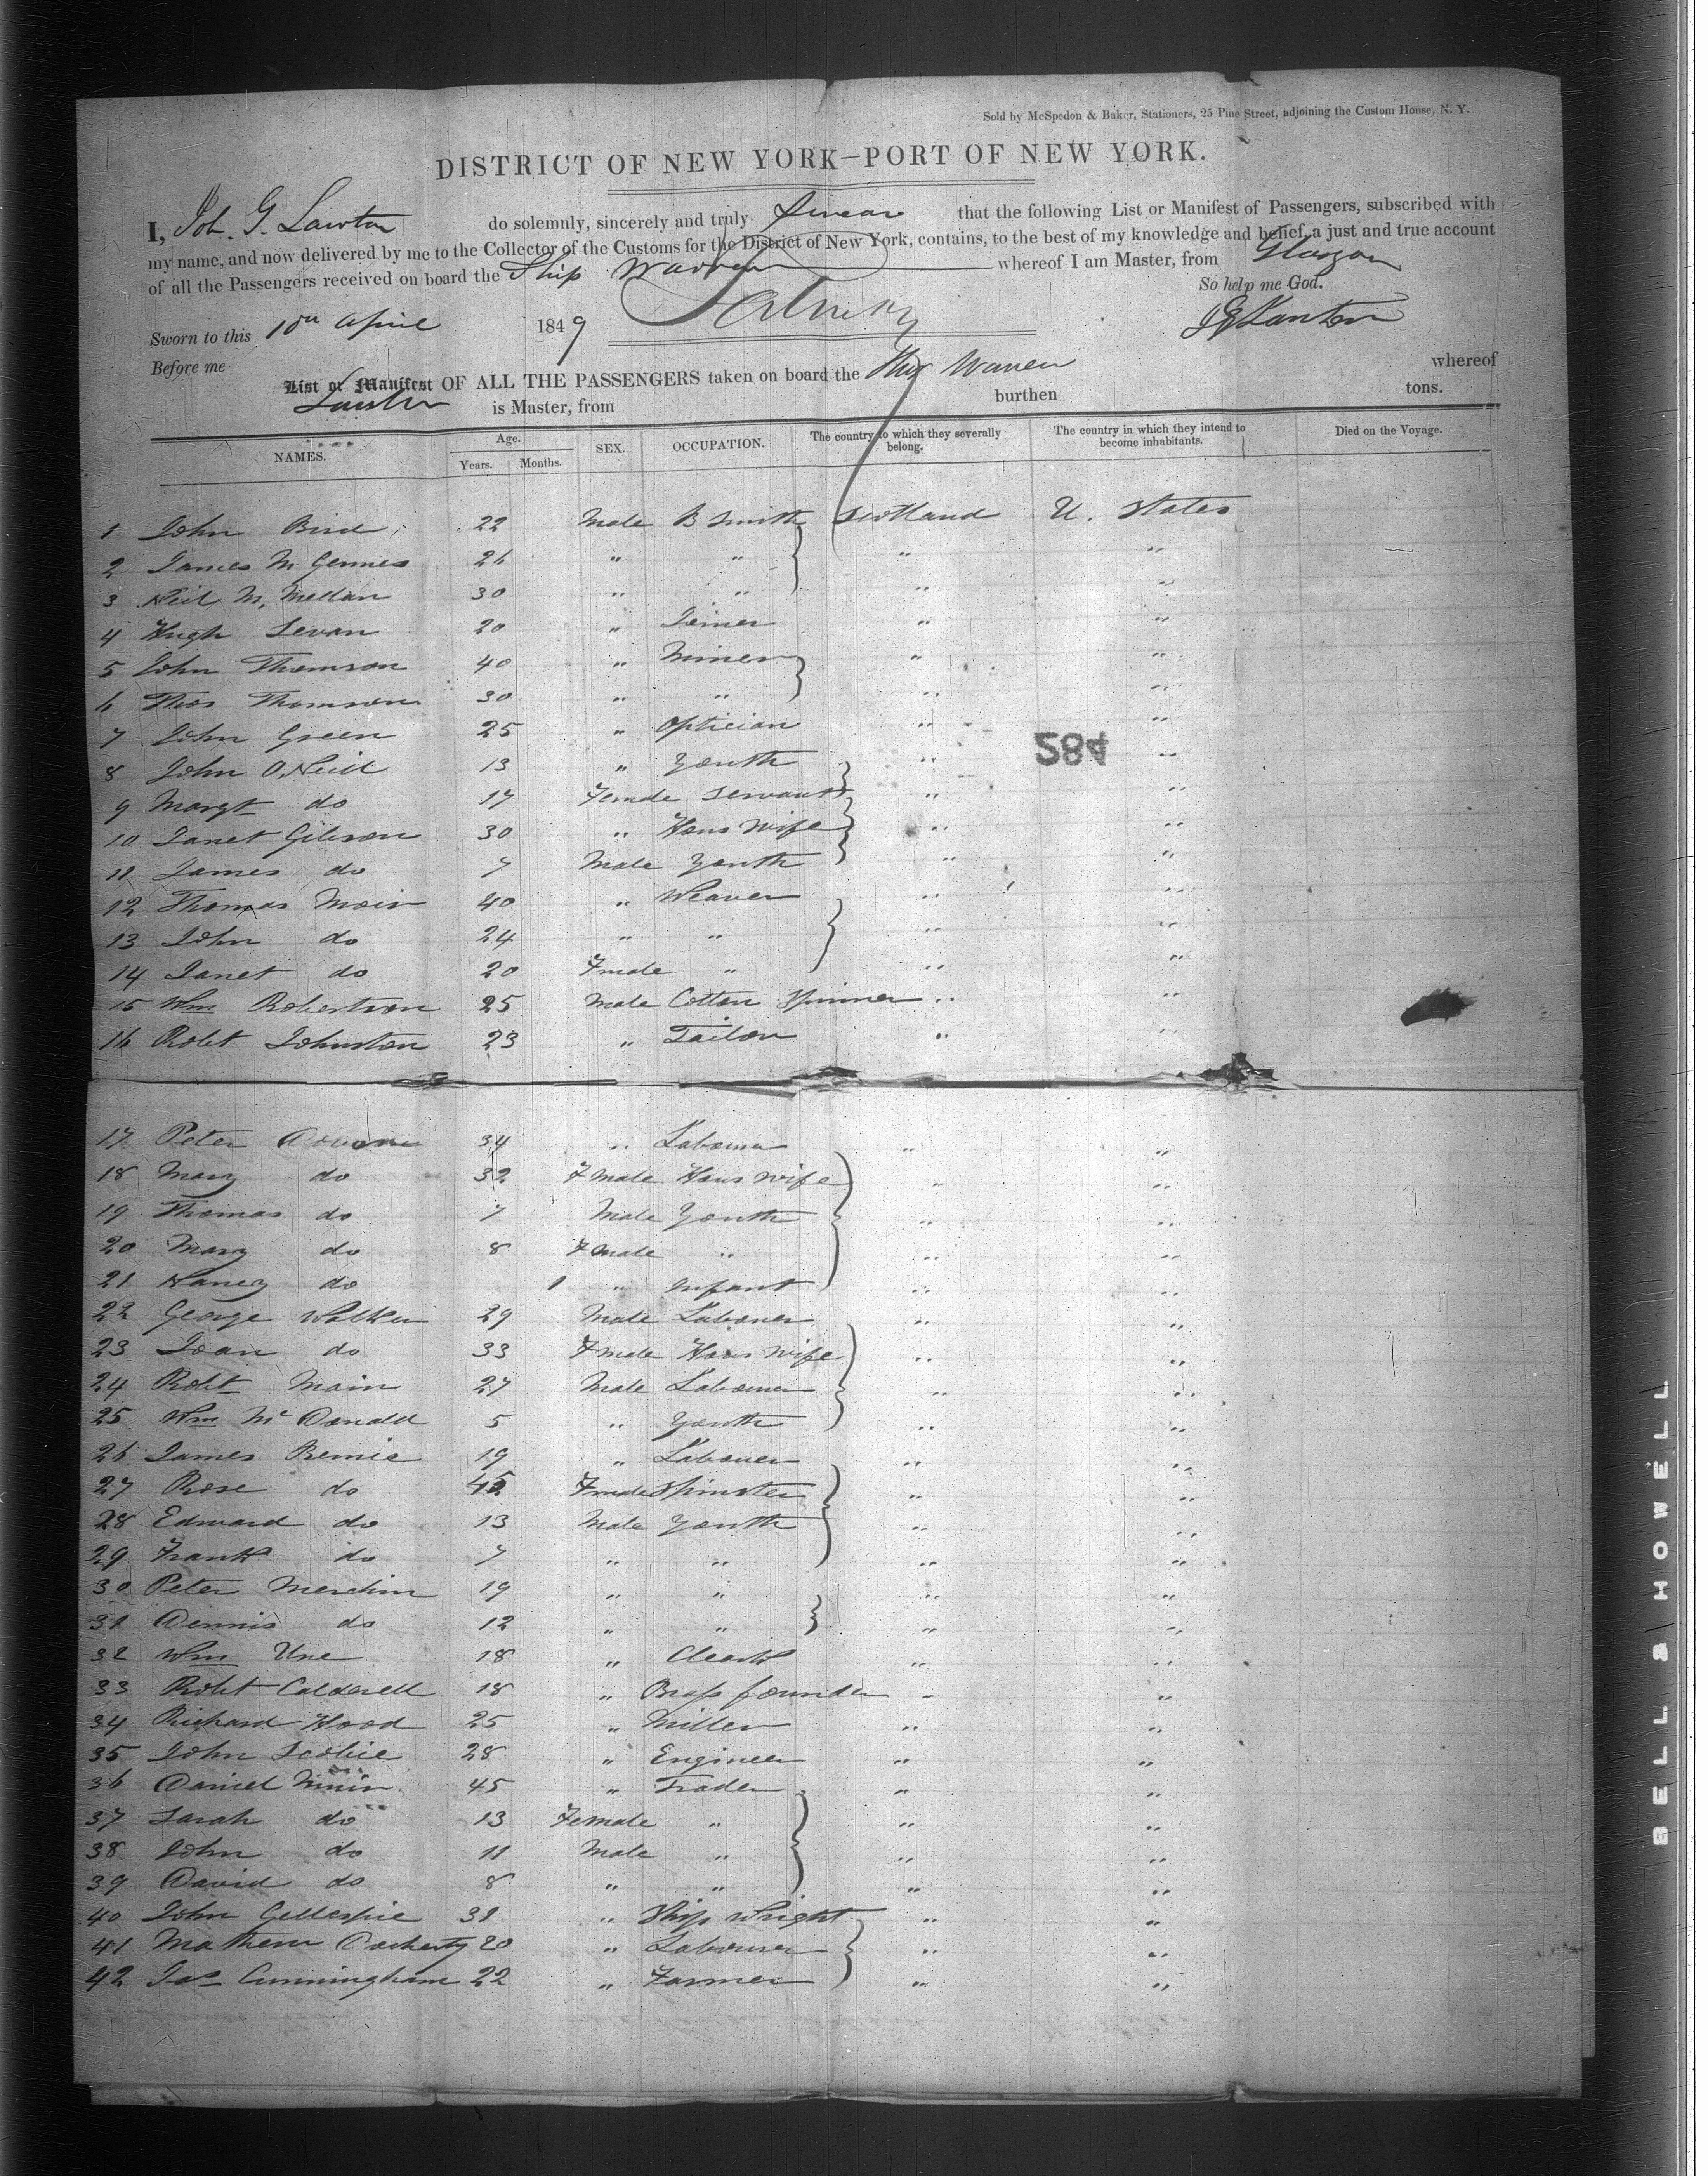 Sold by McSpedon & Baker, Stationers, 25 Pine Street, adjoining the Custom House, N. Y.
DISTRICT OF NEW YORK—PORT OF NEW YORK.
I, Joh. G. Lawton do solemnly, sincerely and truly Swear that the following List or Manifest of Passengers, subscribed with
my name, and now delivered by me to the Collector of the Customs for the District of New York, contains, to the best of my knowledge and belief, a just and true account
of all the Passengers received on board the Ship Warren whereof I am Master, from Glasgow
So help me God.
Sworn to this 10th April 1849
Before me
List or Manifest OF ALL THE PASSENGERS taken on board the Ship Warren whereof
is Master, from burthen tons.
NAMES. Age. Years. Months. SEX. OCCUPATION. The country to which they severally belong. The country in which they intend to become inhabitants. Died on the Voyage.
1 John Bird 22 Male B Smith Scotland U. States
2 James Mc 26 " " " "
3 Neil Mc Mellan 30 " " " "
4 Hugh Sevan 20 " Joiner " "
5 John Thomson 40 " Miner " "
6 Thos Thomson 30 " " " "
7 John Green 25 " Optician " "
284
8 John O,Neill 13 " Youth " "
9 Margt do 17 Female Servant " "
10 Janet Gibson 30 " Hous Wife " "
11 James do 7 Male Youth " "
12 Thomas Moir 40 " Weaver " "
13 John do 24 " " " "
14 Janet do 20 Fmale " " "
15 Wm Robertson 25 Male Cotton Spinner " "
16 Robt Johnston 23 " Tailor " "
17 Peter 34 " Labourer " "
18 Mary do 32 Fmale Hous Wife " "
19 Thomas do 7 Male Youth " "
20 Mary do 8 Fmale " " "
21 Nancy do 1 " Infant " "
22 George Walker 29 Male Labourer " "
23 Joan do 33 Fmale Hous Wife " "
24 Robt Main 27 Male Labourer " "
25 Wm Mc Donald 5 " Youth " "
26 James Bernie 19 " Labourer " "
27 Rose do 45 Fmale Spinster " "
28 Edward do 13 Male Youth " "
29 Frank do 7 " " " "
30 Peter 19 " " " "
31 Dennis do 12 " " " "
32 Wm Ure 18 " Cleark " "
33 Robt Calderell 18 " Brass founder " "
34 Richard Hood 25 " Miller " "
35 John Scobie 28 " Engineer " "
36 Daniel Muir 45 " Trader " "
37 Sarah do 13 Female " " "
38 John do 11 Male " " "
39 David do 8 " " " "
40 John Gellespie 31 " Ship Wright " "
41 Mathew Docherty 20 " Labourer " "
42 Jas Cunningham 22 " Farmer " "
BELL & HOWELL